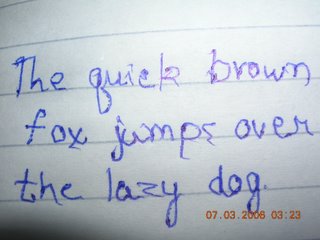 The quick brown
fox jumps over
the lazy dog.
07.03.2006 03:23